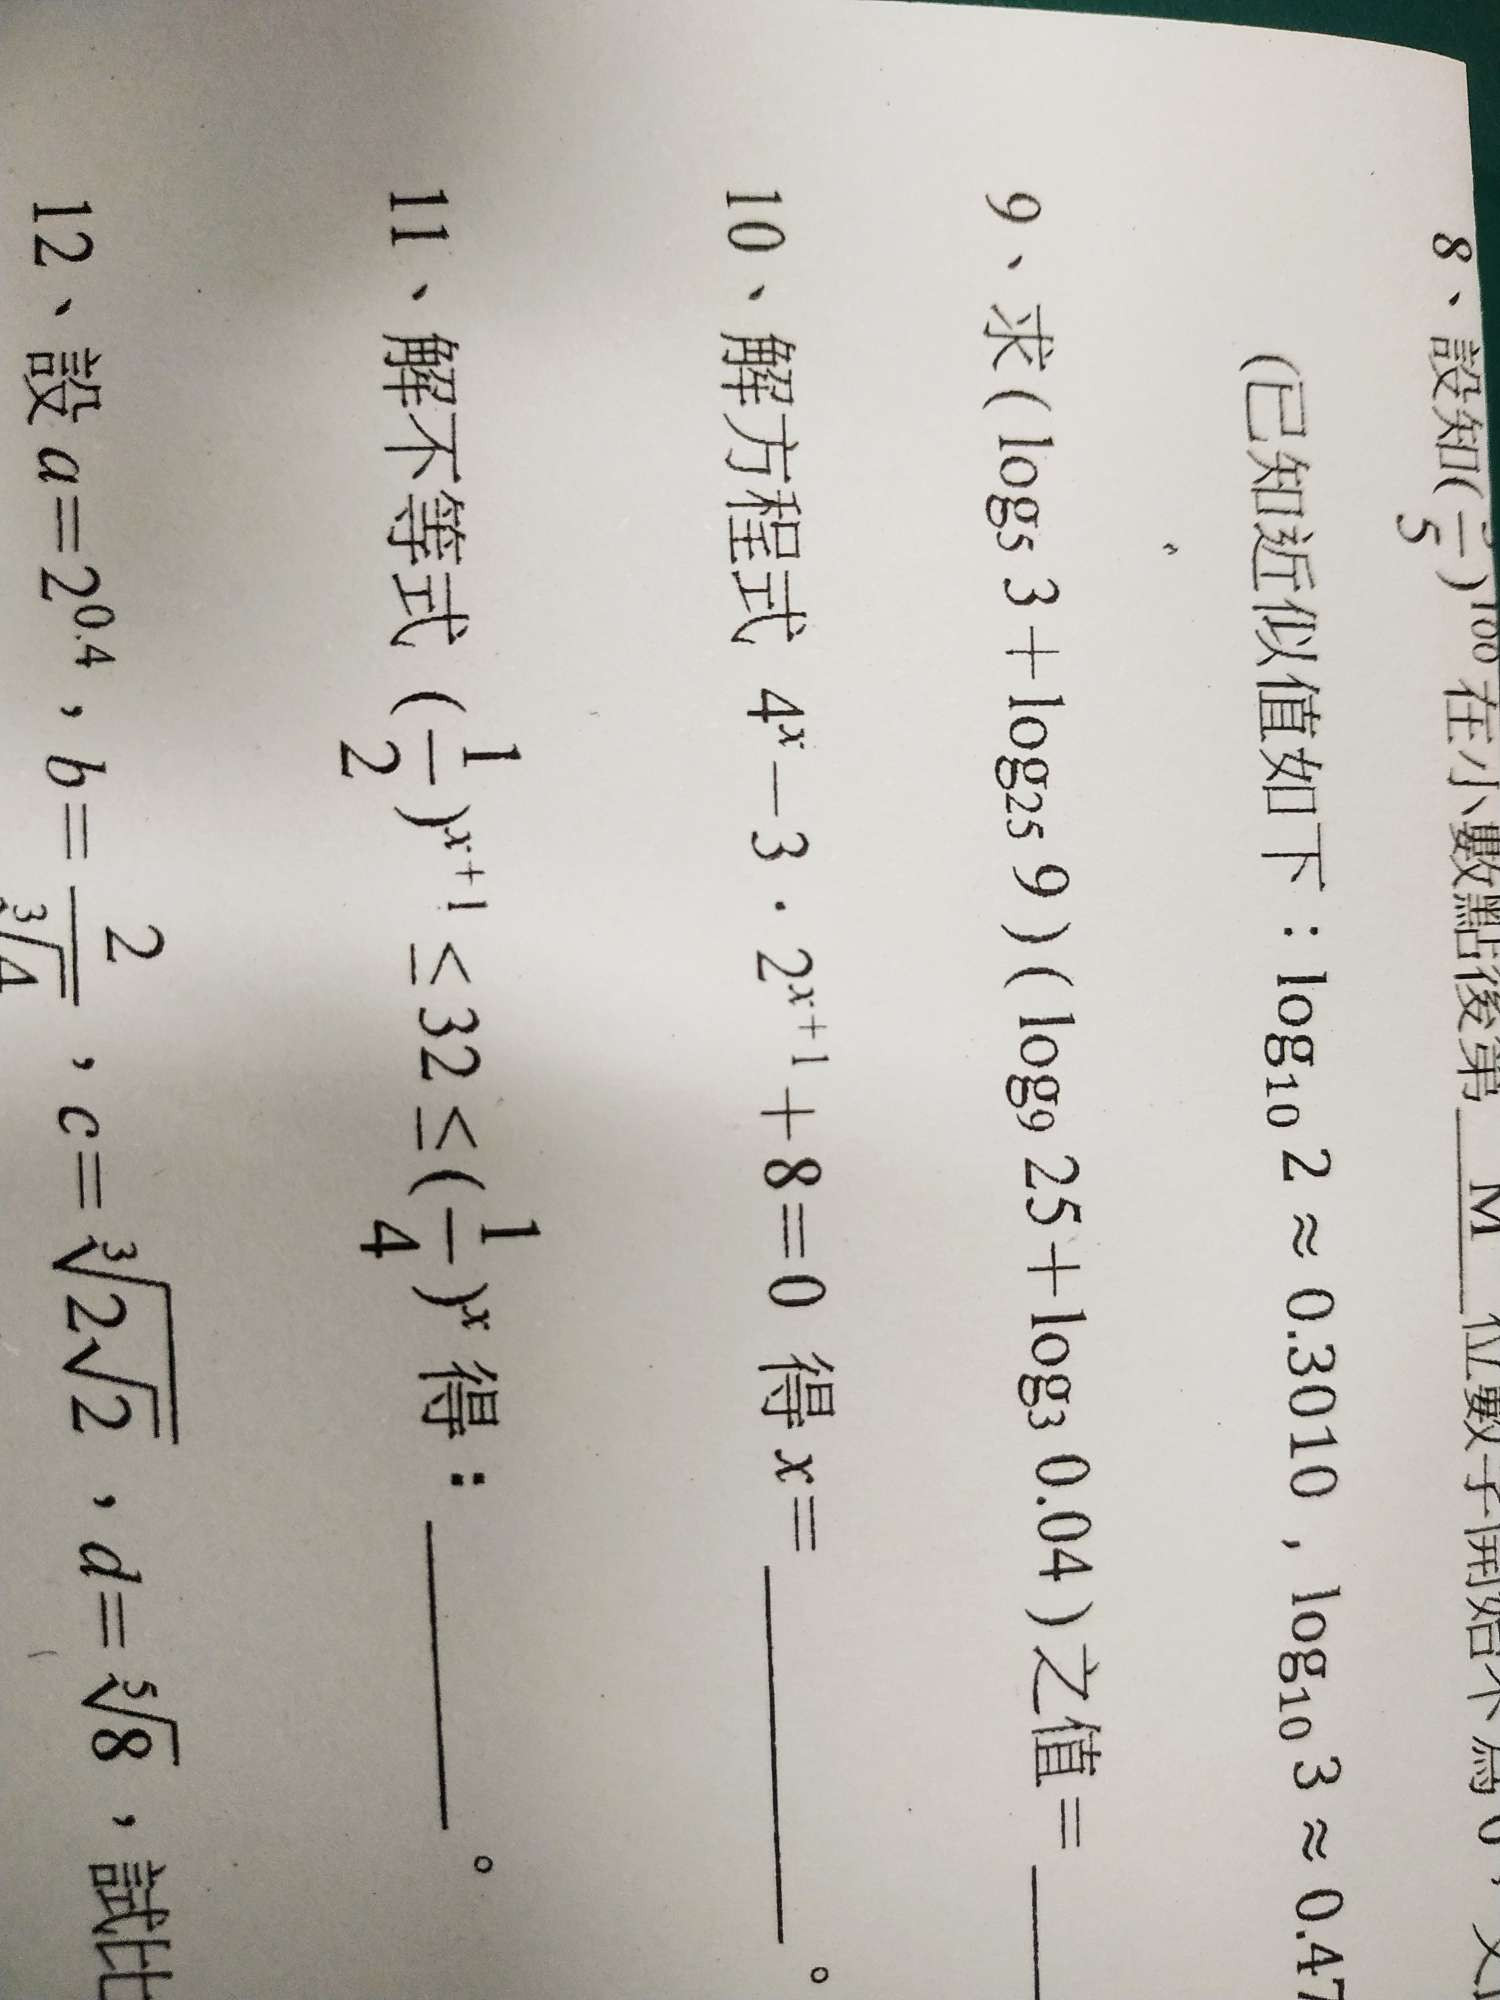 8、設知(—/5)¹⁰⁰在小數點後第 M 位數字開始不為0,
(已知近似值如下:log₁₀ 2 ≈ 0.3010,log₁₀ 3 ≈ 0.47
9、求(log₅ 3+log₂₅ 9)(log₉ 25+log₃ 0.04)之值=
10、解方程式 4ˣ-3·2ˣ⁺¹+8=0 得 x= 。
11、解不等式 (1/2)ˣ⁺¹≤32≤(1/4)ˣ 得: 。
12、設 a=2⁰·⁴,b=2/∛4,c=∛(2√2),d=⁵√8,試比